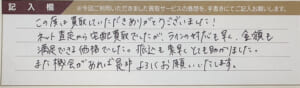 記入欄 ※今回ご利用いただきました買取サービスの感想を、手書きにてご記入お願いします。
この度は買取していただきありがとうございました！
ネット査定から宅配買取でしたが、ラインの対応も早く、金額も
満足できる価格でした。振込も素早くとても助かりました。
また機会があれば是非よろしくお願いいたします。